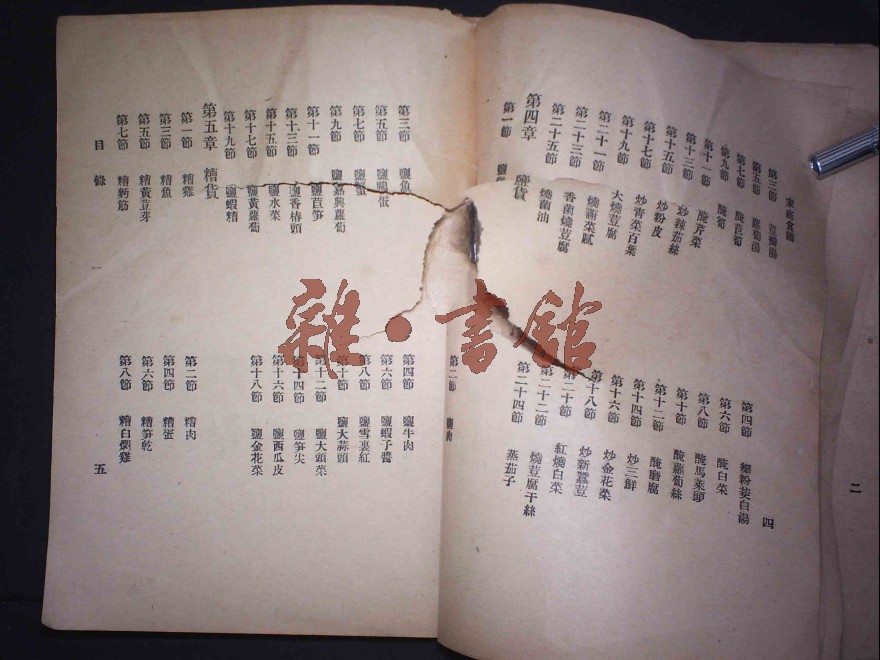 家庭食譜
四
第三節 荳瓣湯
第四節 線粉茭白湯
第五節 蘿蔔湯
第六節 醃白菜
第七節 醃萵筍
第八節 醃馬萊頭
第九節 醃筍
第十節 醃蘿蔔絲
第十一節 醃芹菜
第十二節 醃磨腐
第十三節 炒辣茄絲
第十四節 炒三鮮
第十五節 炒粉皮
第十六節 炒金花菜
第十七節 炒青菜百葉
第十八節 炒新蠶荳
第十九節 大燒荳腐
第二十節 紅燒白菜
第二十一節 燒謝菜膩
第二十二節 燒荳腐干絲
第二十三節 香菌燒荳腐
第二十四節 蒸茄子
第二十五節 燒菌油
第四章 鹽貨
第一節 鹽
第二節 鹽肉
第三節 鹽魚
第四節 鹽牛肉
第五節 鹽鴨蛋
第六節 鹽蝦子醬
第七節 鹽蟹
第八節 鹽雪裏紅
第九節 鹽嘉興蘿蔔
第十節 鹽大蒜頭
第十一節 鹽萵笋
第十二節 鹽大頭菜
第十三節 鹽香椿頭
第十四節 鹽笋尖
第十五節 鹽水菜
第十六節 鹽西瓜皮
第十七節 鹽黃蘿蔔
第十八節 鹽金花菜
第十九節 鹽蝦糟
第五章 糟貨
第一節 糟雞
第二節 糟肉
第三節 糟魚
第四節 糟蛋
第五節 糟黃荳芽
第六節 糟笋乾
第七節 糟麪筋
第八節 糟白燜雞
目錄
五
二
雜·書館